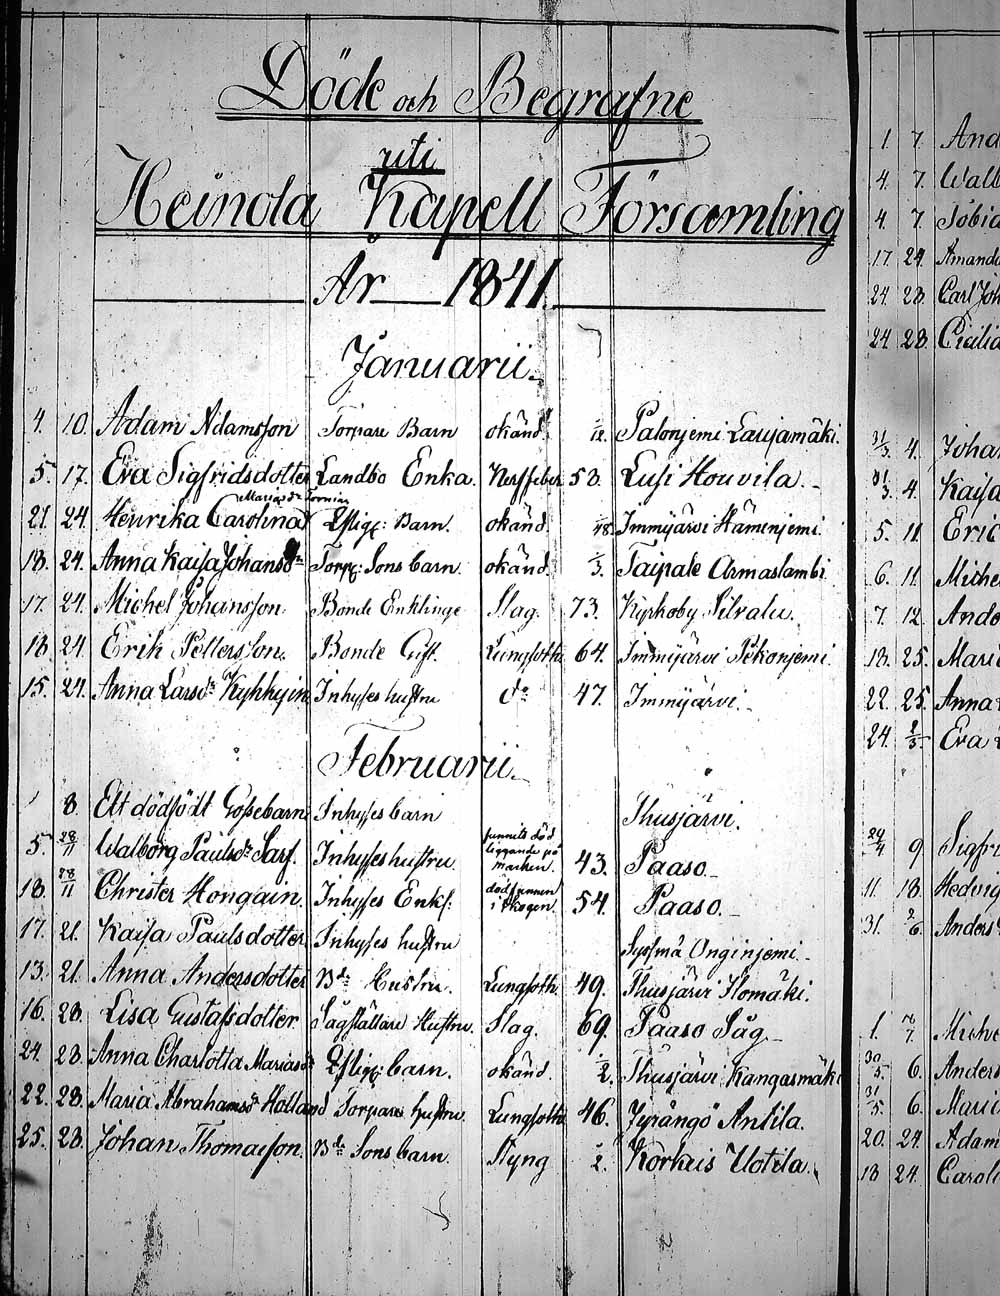 Döde och Begrafne
uti
Heinola Kapell Församling
År 1841.
Januarii.
4. 10. Adam Adamsson Torpare Barn okänd 1/12. Palonjemi Laujamäki.
5. 17. Eva Sigfridsdotter Landbo Enka. Nerffeber 53. Lusi Houvila.
Mariasdr
21. 24. Henrika Carolina Barn. okänd. Immijärvi Hämenjemi.
18. 24. Anna Kajsa Johansdr Torp: Sons barn. okänd. 1/3. Taipale Armaslambi
17. 24. Michel Johansson. Bonde Enklinge Slag. 73. Kyrkoby Silvalu.
18. 24. Erik Pettersson. Bonde Gift. Lungsoth. 64. Immijärvi Pekonjemi.
15. 24. Anna Larsdr Kyhkyin Inhyses hustru do 47. Immijärvi.
Februarii.
8. Ett dödfödt Gossebarn Inhyses barn Thusjärvi.
5. 28/11 Walborg Paulsdr Sarf. Inhyses hustru funnits död liggande på marken. 43. Paaso.
18. 28/11 Christer Hongain. Inhyses Enkl. död funnen i skogen. 54. Paaso.
17. 21. Kajsa Paulsdotter Inhyses hustru Sysmä Onginjemi.
13. 21. Anna Andersdotter Bde Hustru. Lungsoth. 49. Thusjärvi Ilomäki.
16. 23. Lisa Gustafsdotter Sågställare Hustru. Slag. 69. Paaso Såg
24. 23. Anna Charlotta Mariasdr barn. okänd. 1/2. Thusjärvi Kangasmäki
22. 23. Maria Abrahamsdr Holland Torpare hustru. Lungsoth. 46. Jyrängö Antila.
25. 23. Johan Thomasson. Bde Sons barn. Styng 2. Korkeis Uotila.
1. 7. And
4. 7. Walb
4. 7. Tobia
17. 24. Amanda
24. 28. Carl Joh
24 28. Cecilia
31/3. 4. Johan
31/3. 4. Kajsa
5. 11. Eric
6. 11. Michel
7. 12. Ande
18. 25. Mari
22. 25. Anna
24. 2/5. Eva
24/4 9. Sigfri
11. 18. Hedvig
31. 2/6. Anders
1. Miche
30/5 6. Anders
31/5 6. Maria
20. 27. Adam
18 24. Caroli